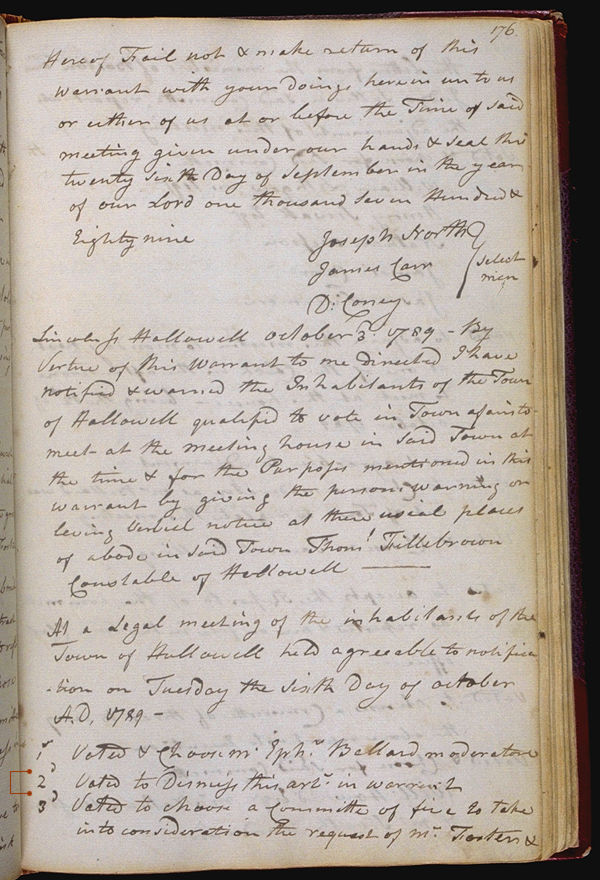 176
Hereof Fail not & make return of this
warrant with your doings herein unto us
or either of us at or before the Time of said
meeting given under our hands & seal this
twenty sixth Day of September in the year
of our Lord one thousand seven Hundred &
Eighty nine
Joseph North
James Carr
select
men
D: Coney
Lincoln ss Hallowell October 3d. 1789 - By
Virtue of this warrant to me Directed I have
notified & warned the Inhabitants of the Town
of Hallowell qualified to vote in Town affairs to
meet at the meeting house in said Town at
the time & for the Purposes mentioned in this
warrant by giving the persons warning or
leving verbil notice at there usial places
of abode in said Town Thoms. Fillebrown
Constable of Hallowell
At a Legal meeting of the inhabitants of the
Town of Hallowell held agreeable to notifica
-tion on Tuesday the sixth Day of october
A.D, 1789 -
1 Voted & Choose mr. Ephm. Ballard moderator
2 Voted to Dismiss this artl. in warrent
3 Voted to choose a Committe of five to take
into consideration the request of mr. Fosters &